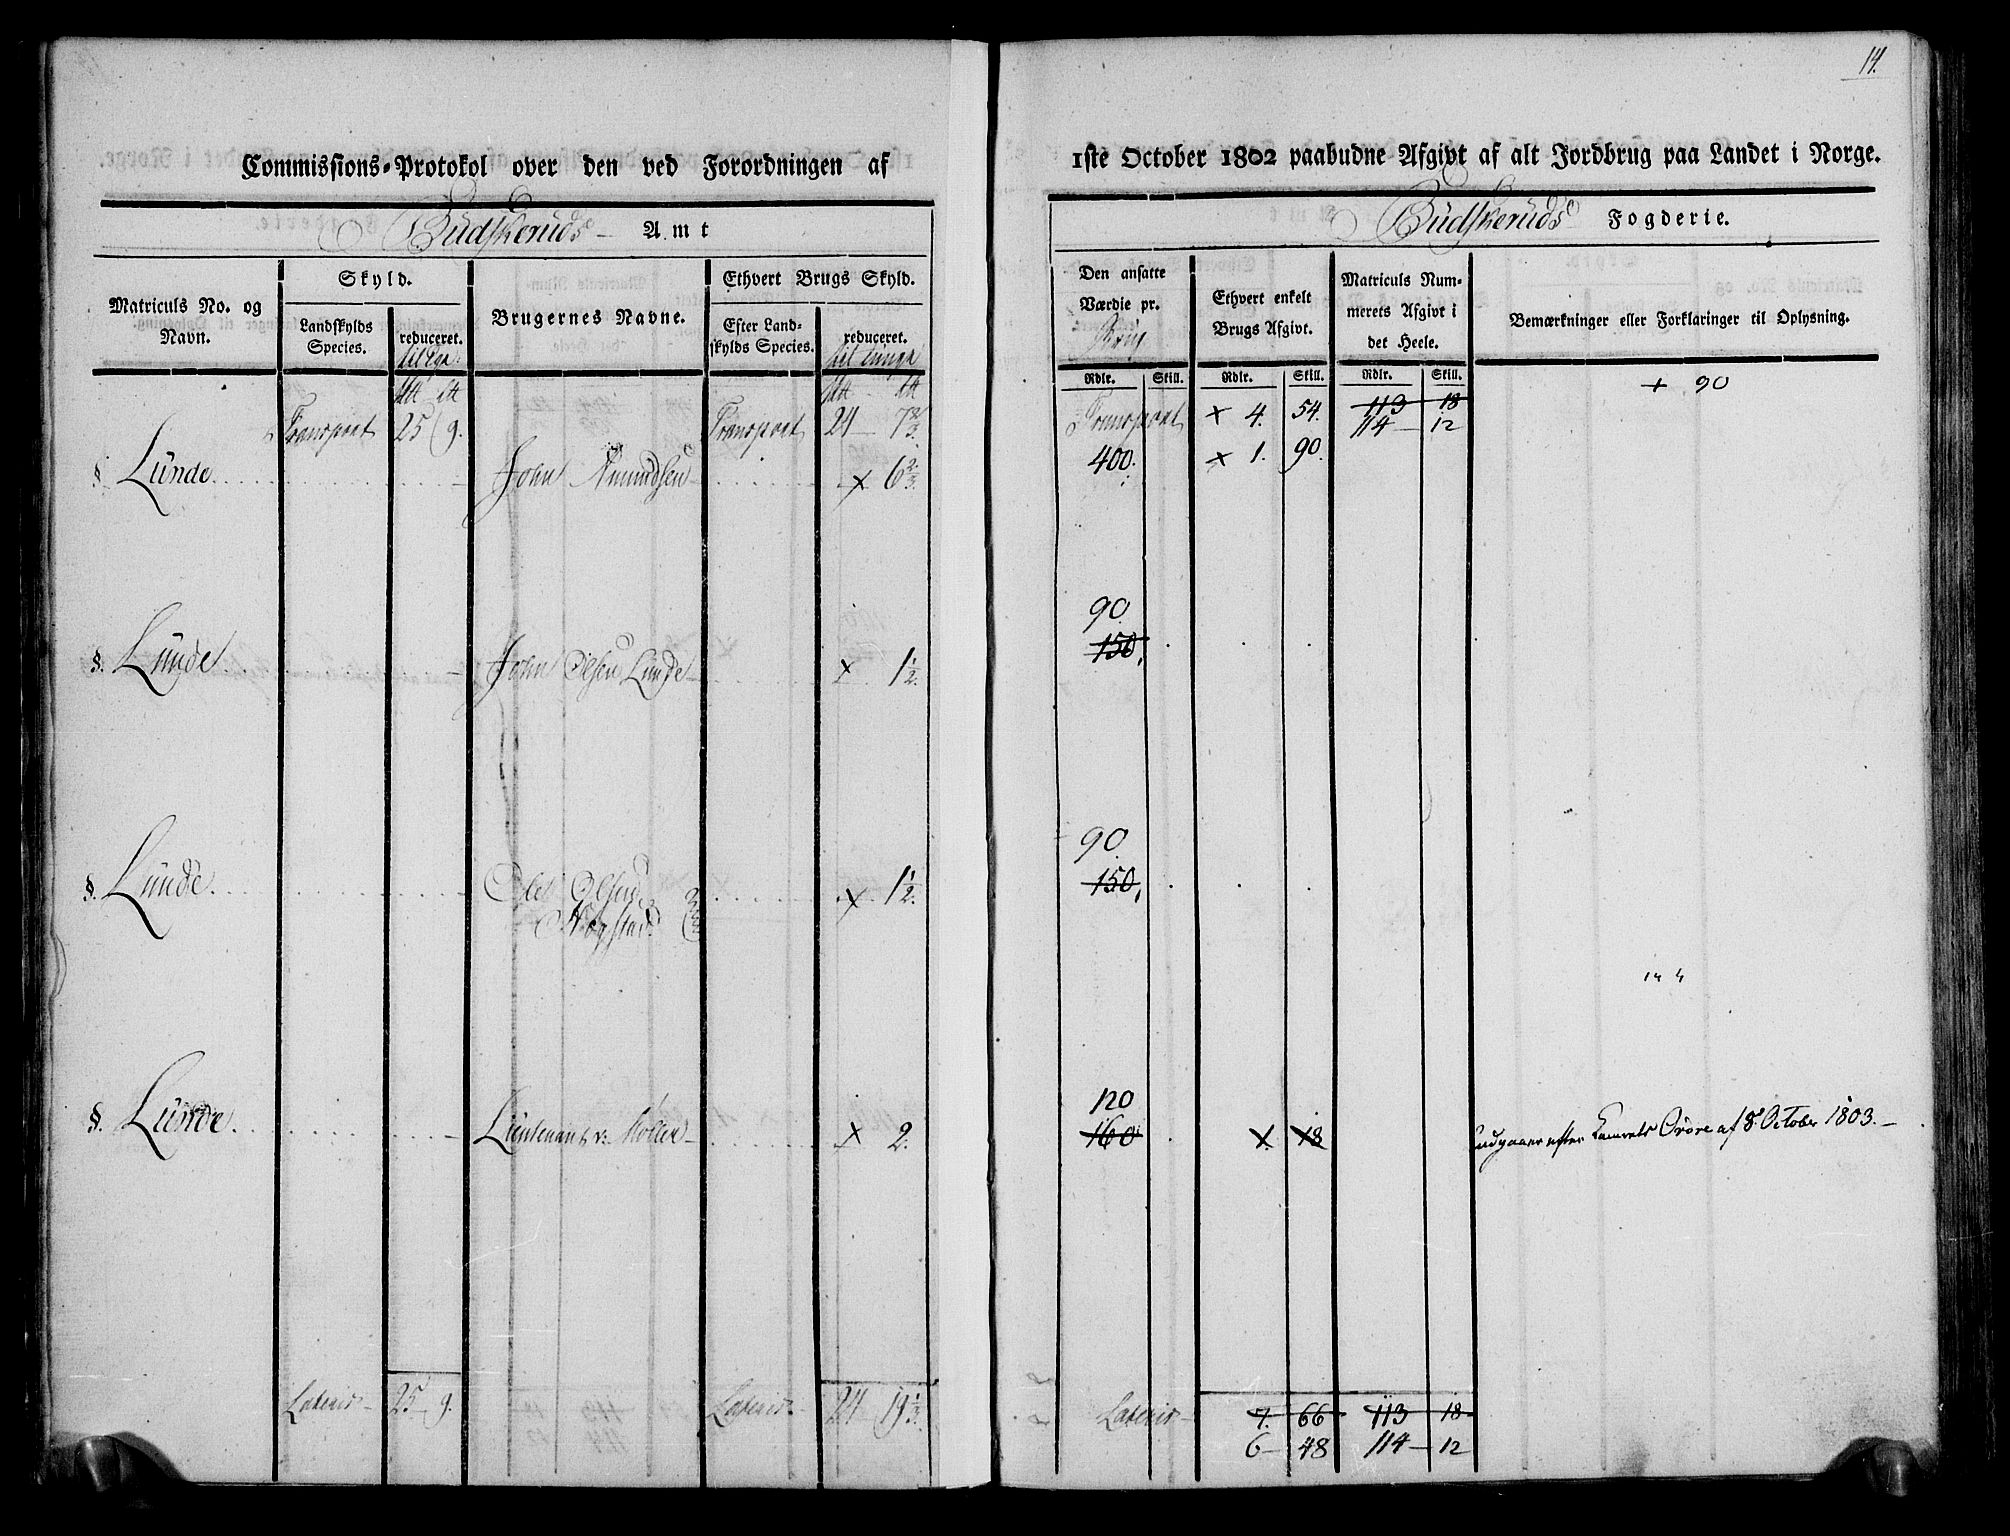 14.
Commissions-Protokol over den ved Forordningen af 1ste October 1802 paabudne Afgivt af alt Jordbrug paa Landet i Norge.
Budskeruds Amt
Budskeruds Fogderie.
Matriculs No. og Navn.
Skyld.
Landskylds Species.
reduceret.
Brugernes Navne.
Ethvert Brugs Skyld.
Efter Landskylds Species.
reduceret.
til Tunge
Den ansatte Værdie pr.
Brug
Ethvert enkelt Brugs Afgivt.
Matriculs Nummerets Afgivt i det Heele.
Bemærkninger eller Forklaringer til Oplysning.
Rdlr. Skill. Rdlr. Skill. Rdlr. Skill.
+ 90
Transport 25 9. Transport 24 7 2/3. Transport × 4. 54. 113 18
114 — 12
§ Lunde. John Amundsen × 6 2/3. 400. × 1. 90.
90.
§. Lunde John Olsen Lunde × 1 1/2. 150.
90.
§. Lunde. Ole Olsen × 1 1/2. 150.
120
§. Lunde. Lieutenant v. Møller × 2. 160 ×. 18 udgaaer efter Kamrets Ordre af 8 October 1803.
Lateris 25 9. Lateris 24 19 1/3. Lateris 7. 66 113 18
6 — 48 114 — 12